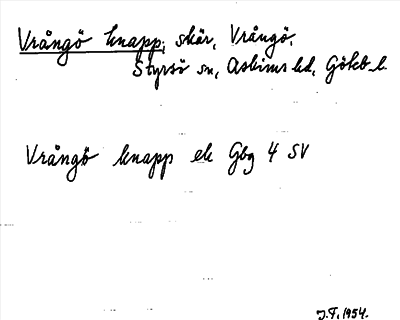 Vrångö knapp, skär, Vrångö.
Styrsö sn, Askims hd, Göteb. l.
Vrångö knapp ek Gbg 4 SV
J.F. 1954.